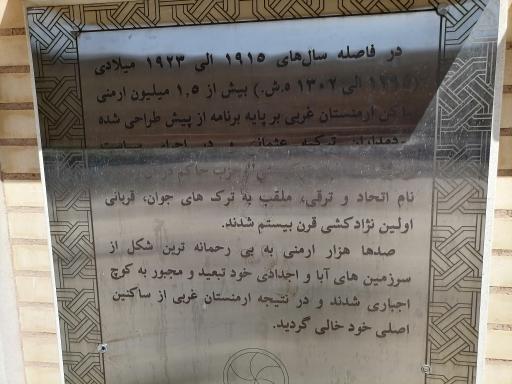 در فاصله سال‌های ۱۹۱۵ الی ۱۹۲۳ میلادی
(۱۲۹۵ الی ۱۳۰۲ ه.ش.) بیش از ۱,۵ میلیون ارمنی
ساکن ارمنستان غربی بر پایه برنامه از پیش طراحی شده
ترکیه عثمانی و در اجرای سیاست
حزب حاکم در
نام اتحاد و ترقی، ملقب به ترک های جوان، قربانی
اولین نژادکشی قرن بیستم شدند.
صدها هزار ارمنی به بی رحمانه ترین شکل از
سرزمین های آبا و اجدادی خود تبعید و مجبور به کوچ
اجباری شدند و در نتیجه ارمنستان غربی از ساکنین
اصلی خود خالی گردید.